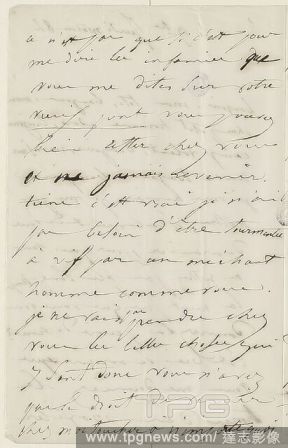 que si c'est pour
me dire les infamies que
vous me dites sur votre
vous pouvez
rester chez vous
et ne jamais revenir.
tiens c'est vrai je n'ai
pas besoin d'être tourmentée
à vif par un méchant
homme comme vous.
je ne vais pas prendre chez
vous les belles choses qui
y sont donc vous n'avez
pas le droit de
chez moi
TPG
www.tpgnews.com/達志影像